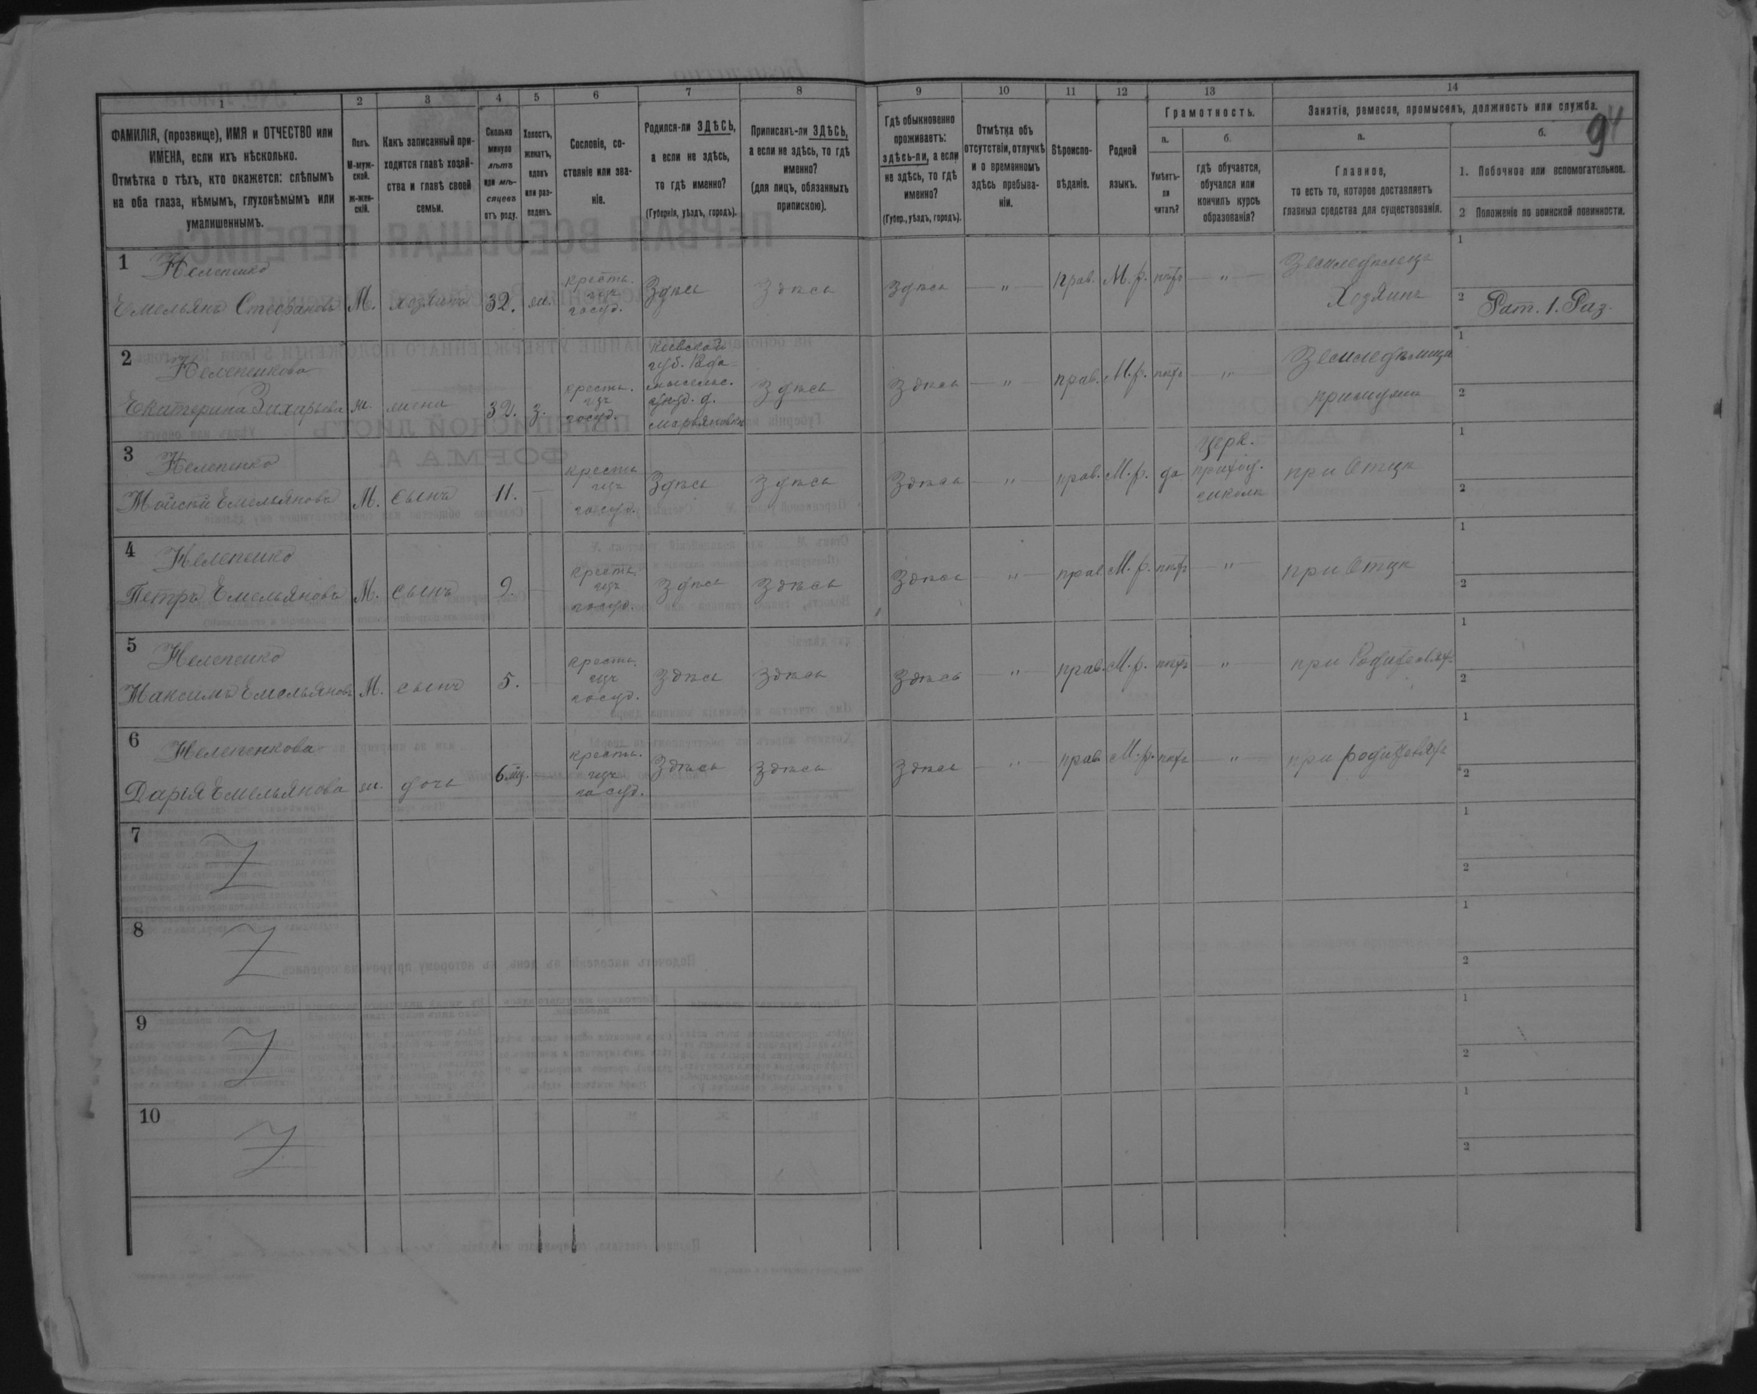 1 2 3 4 5 6 7 8 9 10 11 12 13 14
ФАМИЛІЯ, (прозвище), ИМЯ и ОТЧЕСТВО или
ИМЕНА, если ихъ нѣсколько.
Отмѣтка о тѣхъ, кто окажется: слѣпымъ
на оба глаза, нѣмымъ, глухонѣмымъ или
умалишеннымъ.
Полъ.
М-муж-
ской.
ж-жен-
скій.
Какъ записанный при-
ходится главѣ хозяй-
ства и главѣ своей
семьи.
Сколько
минуло
лѣтъ
или мѣ-
сяцевъ
отъ роду.
Холостъ,
женатъ,
вдовъ
или раз-
веденъ.
Сословіе, со-
стояніе или зва-
ніе.
Родился-ли ЗДѢСЬ,
а если не здѣсь,
то гдѣ именно?
(Губернія, уѣздъ, городъ).
Приписанъ-ли ЗДѢСЬ,
а если не здѣсь, то гдѣ
именно?
(для лицъ, обязанныхъ
припискою).
Гдѣ обыкновенно
проживаетъ:
здѣсь-ли, а если
не здѣсь, то гдѣ
именно?
(Губер., уѣздъ, городъ).
Отмѣтка объ
отсутствіи, отлучкѣ
и о временномъ
здѣсь пребыва-
ніи.
Вѣроиспо-
вѣданіе.
Родной
языкъ.
Грамотность.
а.
Умѣетъ-
ли
читать?
б.
гдѣ обучается,
обучался или
кончилъ курсъ
образованія?
Занятія, ремесло, промыселъ, должность или служба.
а.
Главное,
то есть то, которое доставляетъ
главныя средства для существованія.
б.
1. Побочное или вспомогательное.
2 Положеніе по воинской повинности.
94
1 Нелепенко
Емельянъ Стефановъ М. хозяинъ 32. ж. крестья. изъ госуд. Здѣсь Здѣсь Здѣсь — " — прав. М.р. нѣтъ — " — Земледѣлецъ Хозяинъ
1
2 Рат. 1. Раз.
2 Нелепенкова
Екатерина Захарьева ж. жена 32. з. крестья. изъ госуд. Кіевской губ. Радомысльс. уѣзд. д. Марьяновка Здѣсь Здѣсь — " — прав. М.р. нѣтъ — " —
1
2
3 Нелепенко
Мойсей Емельяновъ М. сынъ 11. — крестья изъ госуд. Здѣсь Здѣсь Здѣсь — " — прав. М.р. да церк. приход. школа при Отцѣ
1
2
4 Нелепенко
Петръ Емельяновъ М. сынъ 9. — крестья изъ госуд. Здѣсь Здѣсь Здѣсь — " — прав. М.р. нѣтъ — " — при Отцѣ
1
2
5 Нелепенко
Максимъ Емельяновъ М. сынъ 5. — крестья. изъ госуд. Здѣсь Здѣсь Здѣсь — " — прав. М.р. нѣтъ — " — при Родителяхъ
1
2
6 Нелепенкова
Дарія Емельянова ж. дочь 6 м. — крестья. изъ госуд. Здѣсь Здѣсь Здѣсь — " — прав. М.р. нѣтъ — " — при родителяхъ
1
2
7 Z
1
2
8 Z
1
2
9 Z
1
2
10 Z
1
2